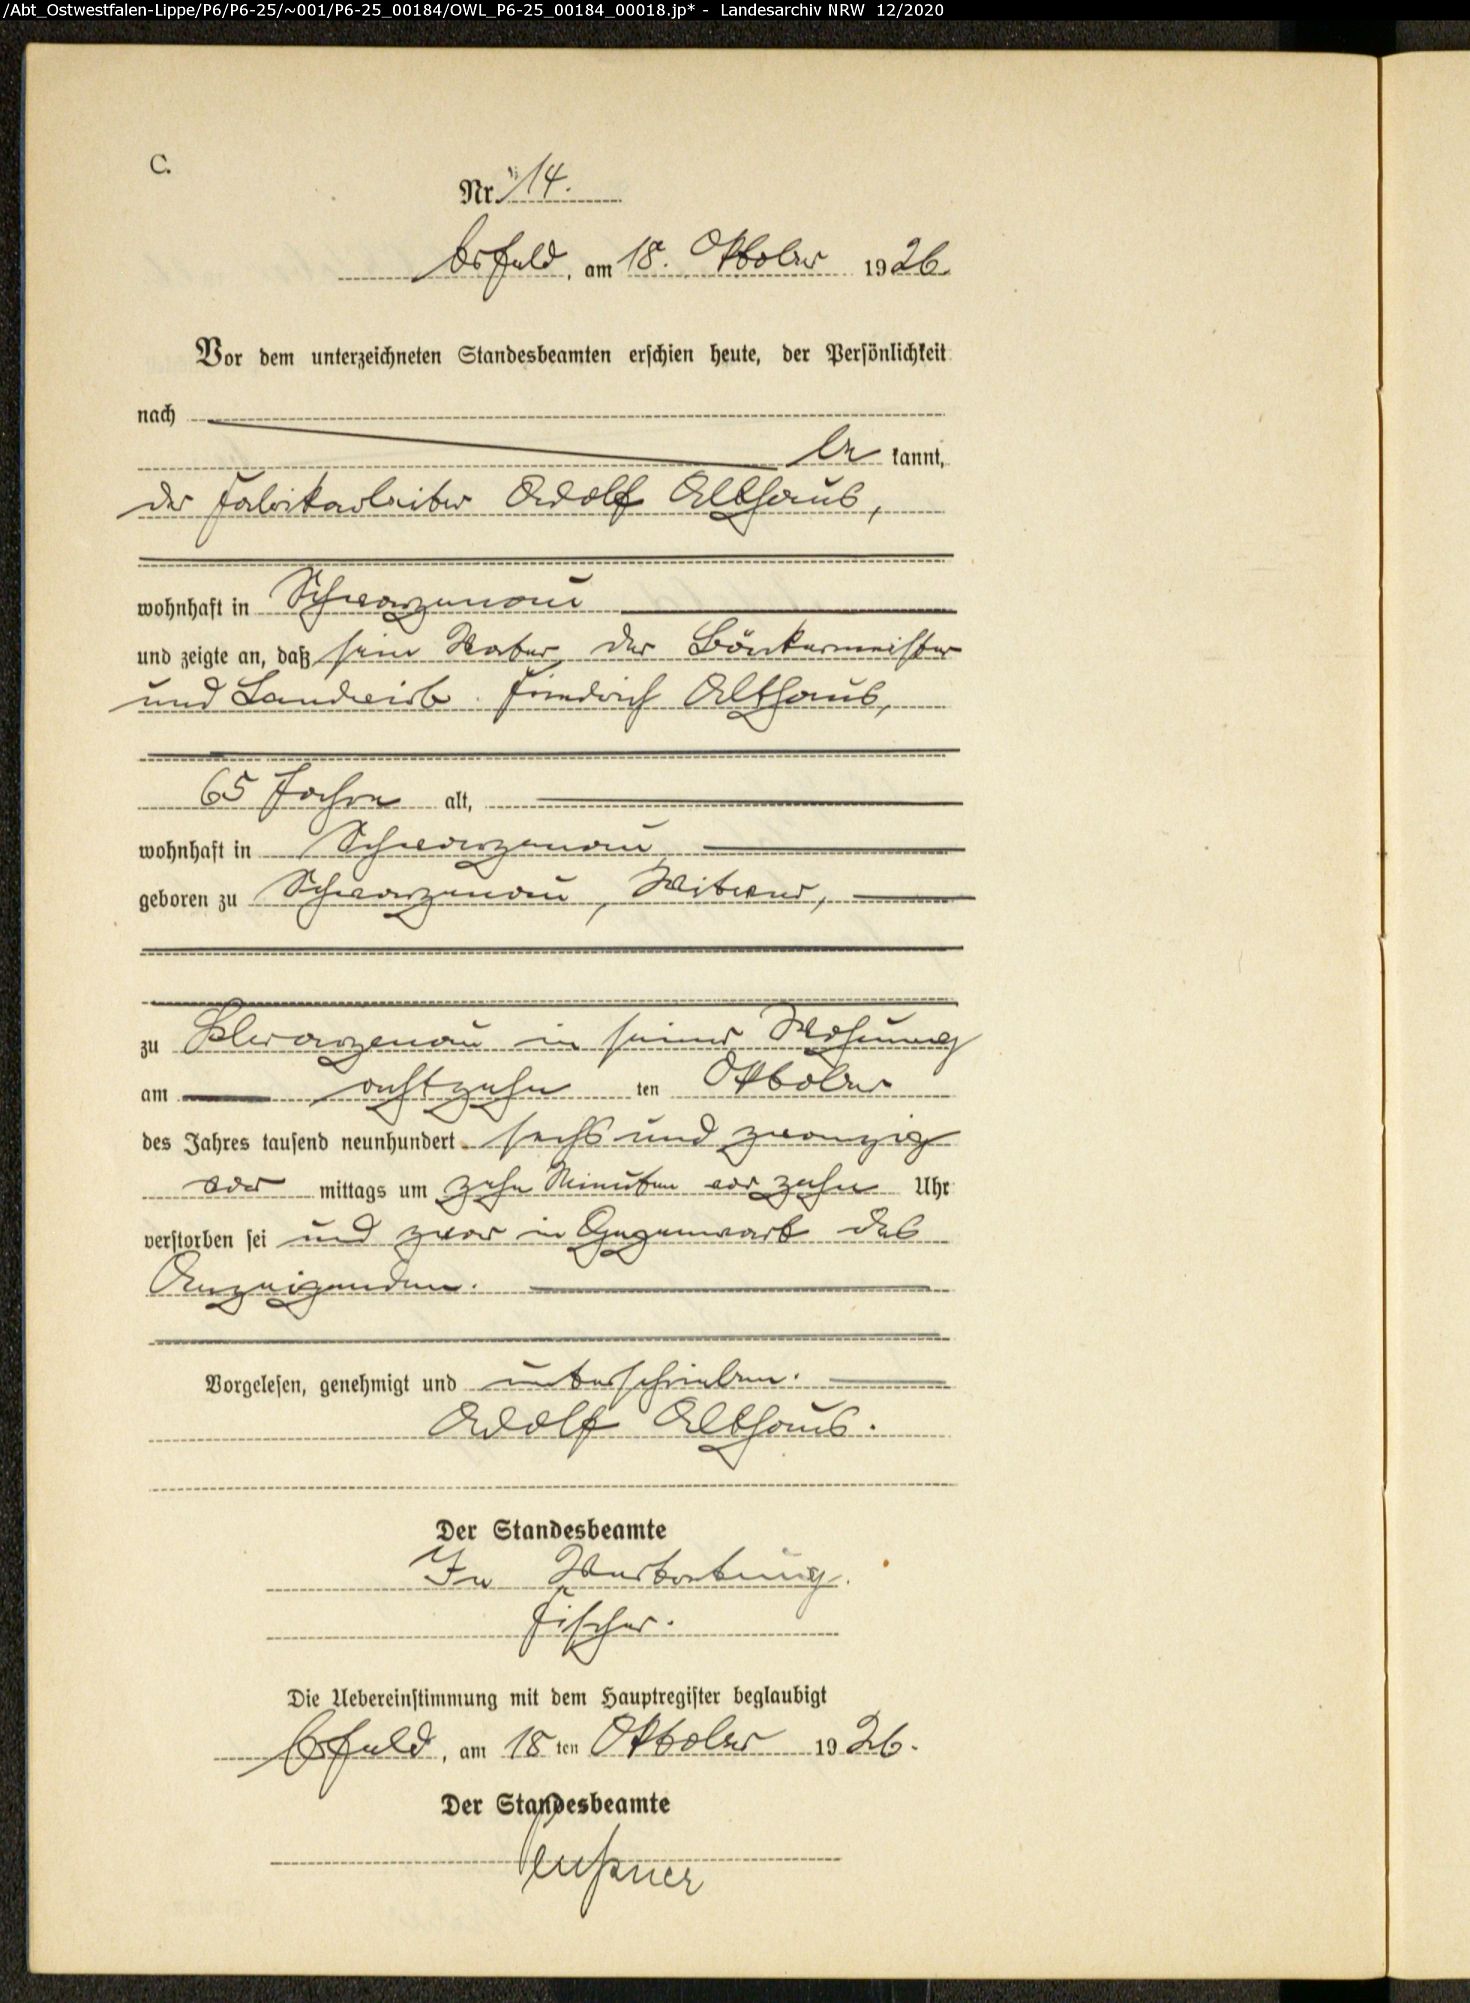 /Abt_Ostwestfalen-Lippe/P6/P6-25/~001/P6-25_00184/OWL_P6-25_00184_00018.jp* - Landesarchiv NRW 12/2020
C.
Nr. 14.
Arfeld, am 18. Oktober 1926.
Vor dem unterzeichneten Standesbeamten erschien heute, der Persönlichkeit
nach
be kannt,
der Fabrikarbeiter Adolf Althaus,
wohnhaft in Schwarzenau
und zeigte an, daß sein Vater, der Bäckermeister
und Landwirt Friedrich Althaus,
65 Jahre alt,
wohnhaft in Schwarzenau
geboren zu Schwarzenau, Witwer,
zu Schwarzenau in seiner Wohnung
am achtzehn ten Oktober
des Jahres tausend neunhundert sechs und zwanzig
vor mittags um zehn Minuten vor zehn Uhr
verstorben sei und zwar in Gegenwart des
Anzeigenden.
Vorgelesen, genehmigt und unterschrieben.
Adolf Althaus.
Der Standesbeamte
In Vertretung.
Fischer.
Die Uebereinstimmung mit dem Hauptregister beglaubigt
Arfeld, am 18 ten Oktober 1926.
Der Standesbeamte